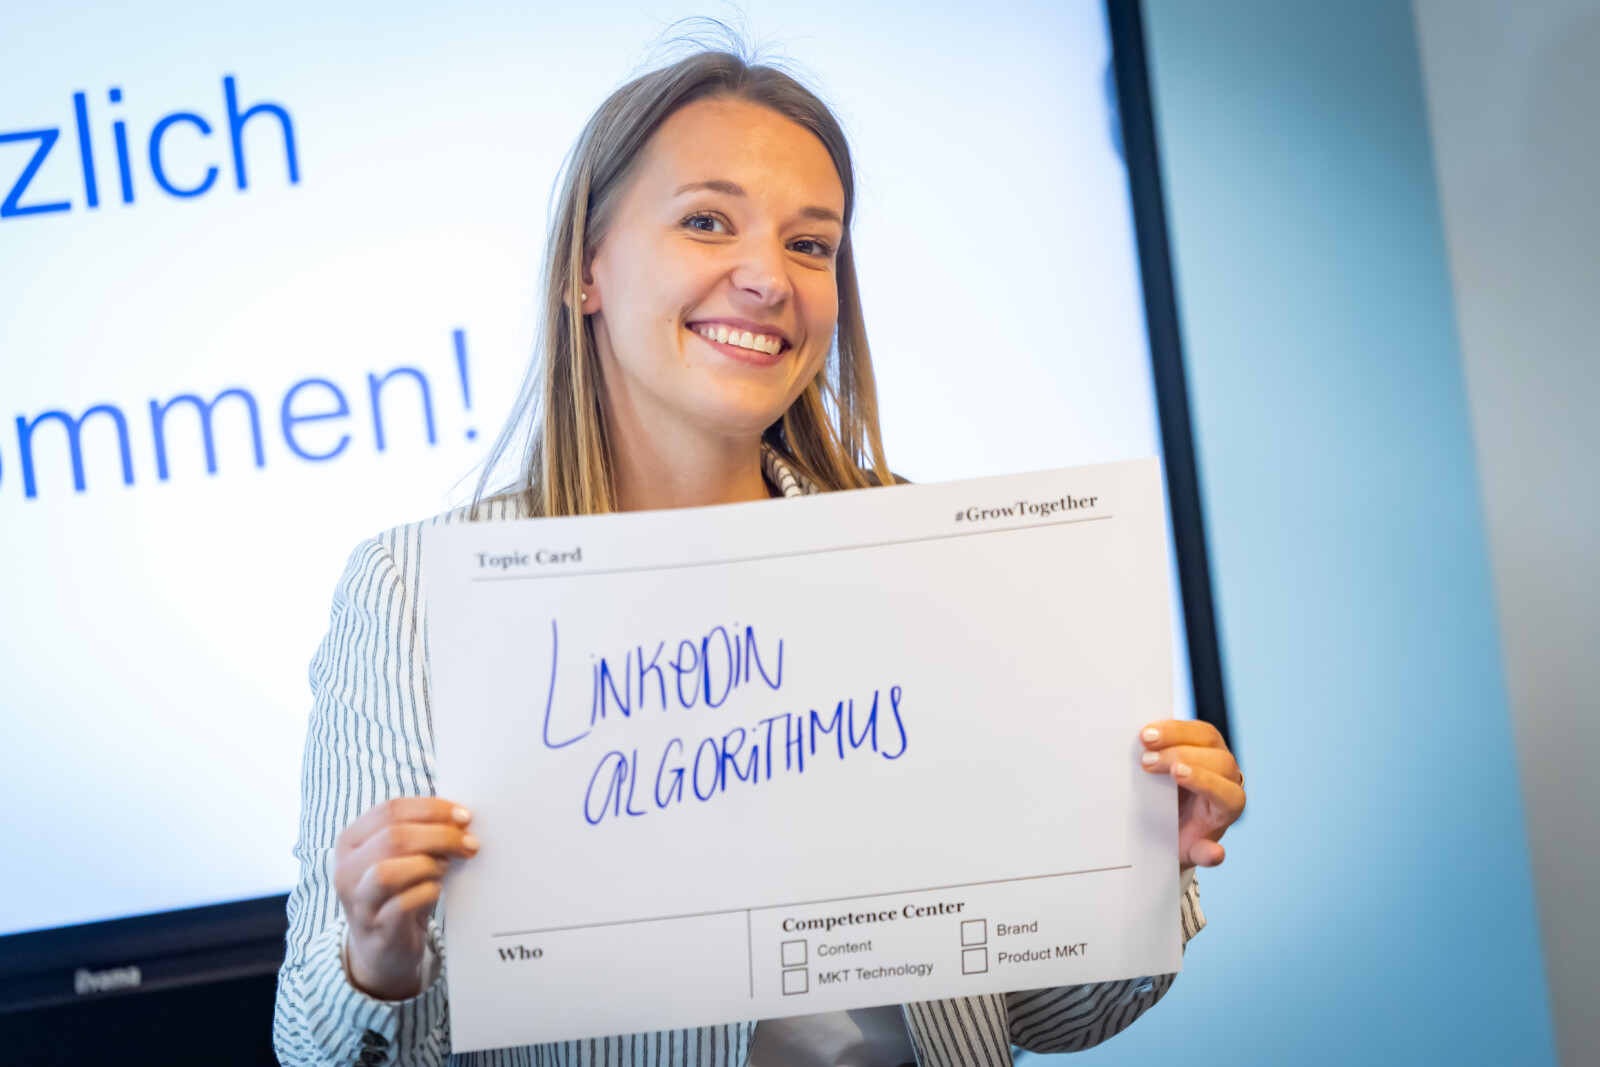 zlich
ommen!
#GrowTogether
Topic Card
LiNKeDiN
aLGORiTHMUS
Who
Competence Center
Content
Brand
MKT Technology
Product MKT
iiyama